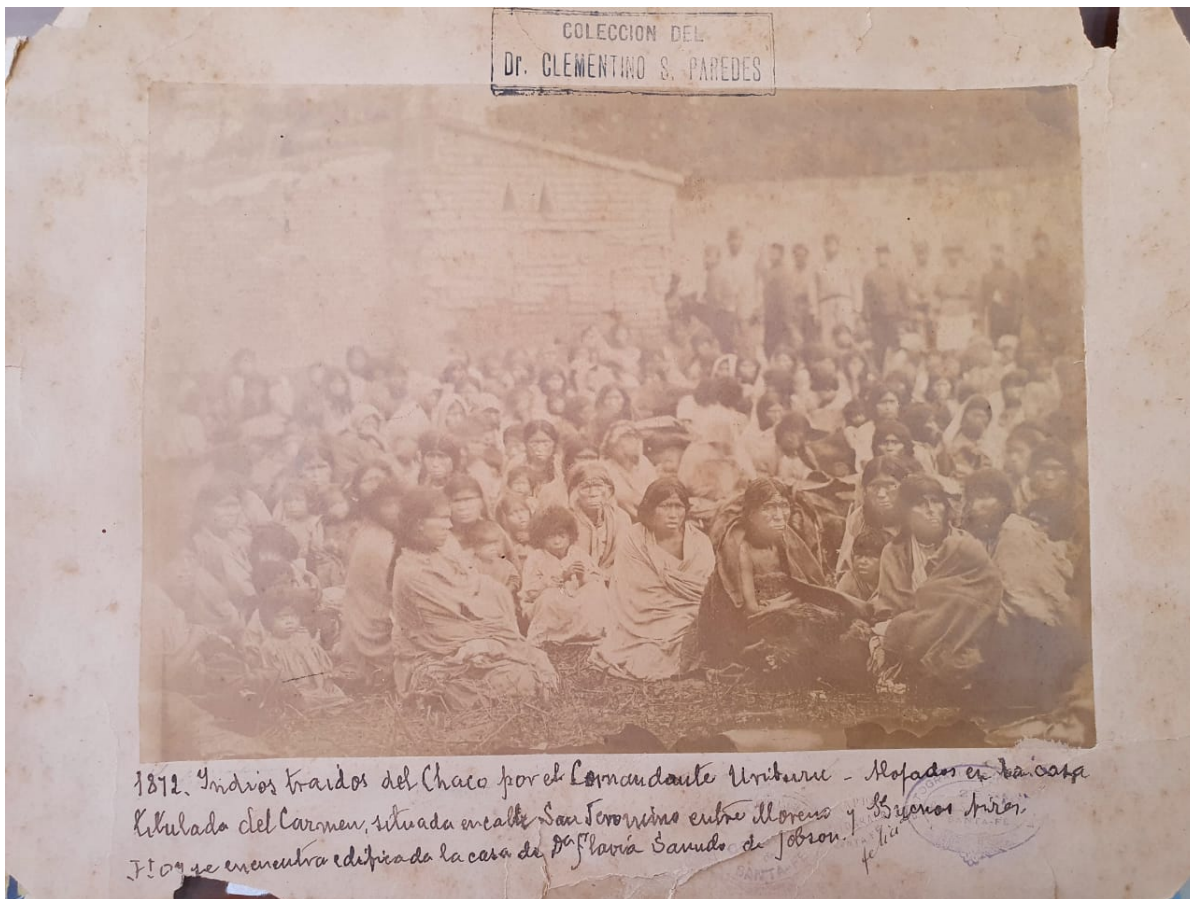 COLECCION DEL
Dr. CLEMENTINO S. PAREDES
1872. Indios traidos del Chaco por el Comandante Uriburu - Alojados en la casa
titulada del Carmen, situada en calle San Jeronimo entre Moreno y Buenos Aires
se encuentra edificada la casa de Dª Flavia Sañudo de Jobson.
SANTA-FE
SANTA FE